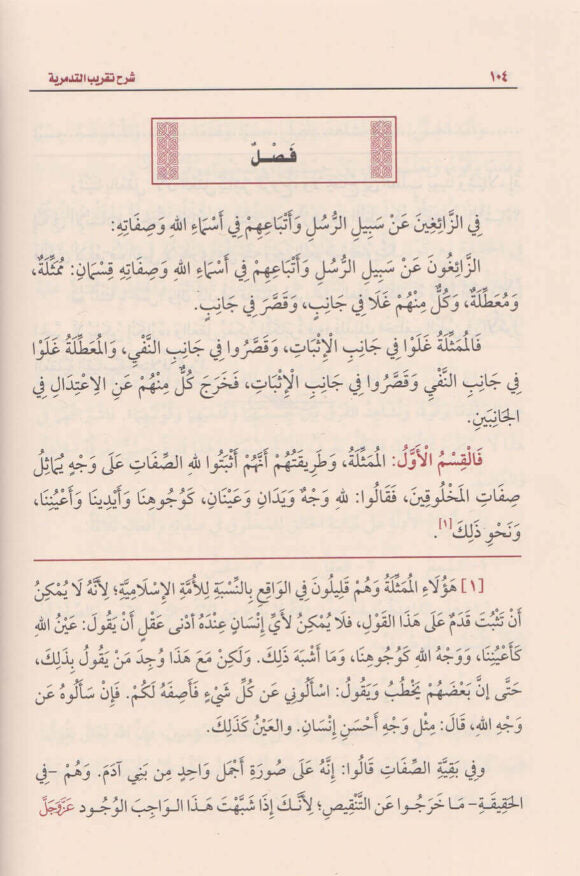 ١٠٤
شرح تقريب التدمرية
فَصْلٌ
فِي الزَّائِغِينَ عَنْ سَبِيلِ الرُّسُلِ وَأَتْبَاعِهِمْ فِي أَسْمَاءِ اللهِ وَصِفَاتِهِ:
الزَّائِغُونَ عَنْ سَبِيلِ الرُّسُلِ وَأَتْبَاعِهِمْ فِي أَسْمَاءِ اللهِ وَصِفَاتِهِ قِسْمَانِ: مُمَثِّلَةٌ،
وَمُعَطِّلَةٌ، وَكُلٌّ مِنْهُمْ غَلَا فِي جَانِبٍ، وَقَصَّرَ فِي جَانِبٍ.
فَالْمُمَثِّلَةُ غَلَوْا فِي جَانِبِ الْإِثْبَاتِ، وَقَصَّرُوا فِي جَانِبِ النَّفْيِ، وَالْمُعَطِّلَةُ غَلَوْا
فِي جَانِبِ النَّفْيِ وَقَصَّرُوا فِي جَانِبِ الْإِثْبَاتِ، فَخَرَجَ كُلٌّ مِنْهُمْ عَنِ الِاعْتِدَالِ فِي
الْجَانِبَيْنِ.
فَالْقِسْمُ الْأَوَّلُ: الْمُمَثِّلَةُ، وَطَرِيقَتُهُمْ أَنَّهُمْ أَثْبَتُوا للهِ الصِّفَاتِ عَلَى وَجْهٍ يُمَاثِلُ
صِفَاتِ الْمَخْلُوقِينَ، فَقَالُوا: للهِ وَجْهٌ وَيَدَانِ وَعَيْنَانِ، كَوُجُوهِنَا وَأَيْدِينَا وَأَعْيُنِنَا،
وَنَحْوِ ذَلِكَ[١].
[١] هَؤُلَاءِ الْمُمَثِّلَةُ وَهُمْ قَلِيلُونَ فِي الوَاقِعِ بِالنِّسْبَةِ لِلْأُمَّةِ الْإِسْلَامِيَّةِ؛ لِأَنَّهُ لَا يُمْكِنُ
أَنْ تَثْبُتَ قَدَمٌ عَلَى هَذَا القَوْلِ، فَلَا يُمْكِنُ لِأَيِّ إِنْسَانٍ عِنْدَهُ أَدْنَى عَقْلٍ أَنْ يَقُولَ: عَيْنُ اللهِ
كَأَعْيُنِنَا، وَوَجْهُ اللهِ كَوُجُوهِنَا، وَمَا أَشْبَهَ ذَلِكَ. وَلَكِنْ مَعَ هَذَا وُجِدَ مَنْ يَقُولُ بِذَلِكَ،
حَتَّى إِنَّ بَعْضَهُمْ يَخْطُبُ وَيَقُولُ: اسْأَلُونِي عَنْ كُلِّ شَيْءٍ فَأَصِفَهُ لَكُمْ. فَإِنْ سَأَلُوهُ عَنْ
وَجْهِ اللهِ، قَالَ: مِثْلُ وَجْهِ أَحْسَنِ إِنْسَانٍ. والعَيْنُ كَذَلِكَ.
وفِي بَقِيَّةِ الصِّفَاتِ قَالُوا: إِنَّهُ عَلَى صُورَةِ أَجْمَلِ وَاحِدٍ مِنْ بَنِي آدَمَ. وَهُمْ -فِي
الحَقِيقَةِ- مَا خَرَجُوا عَنِ التَّنْقِيصِ؛ لِأَنَّكَ إِذَا شَبَّهْتَ هَذَا الوَاجِبَ الوُجُودِ عَزَّوَجَلَّ